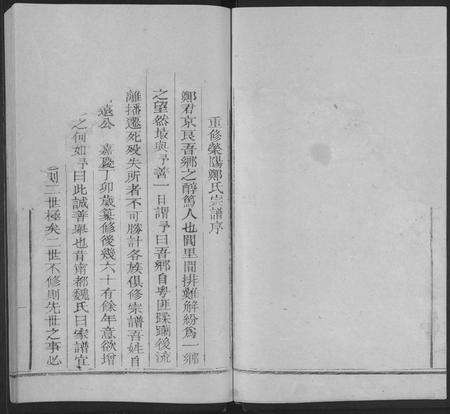 重修滎陽鄭氏宗譜序
鄭君京良吾鄉之醇篤人也閭里間排難解紛為一鄉
之望然故與予善一日謂予曰吾鄉自粵匪蹂躪後流
離播遷死殁失所者不可勝計各族俱修宗譜吾姓自
遠公嘉慶丁卯歲纂修後幾六十有餘年意欲增
之何如予曰此誠善舉也昔南都魏氏曰家譜宜
則二世極矣二世不修則先世之事必